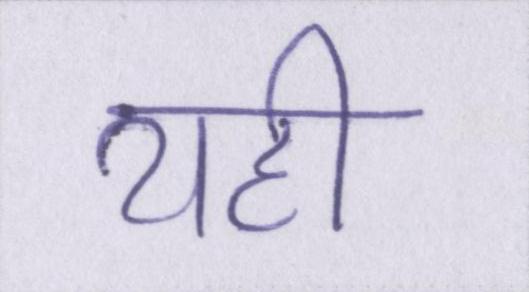 यही